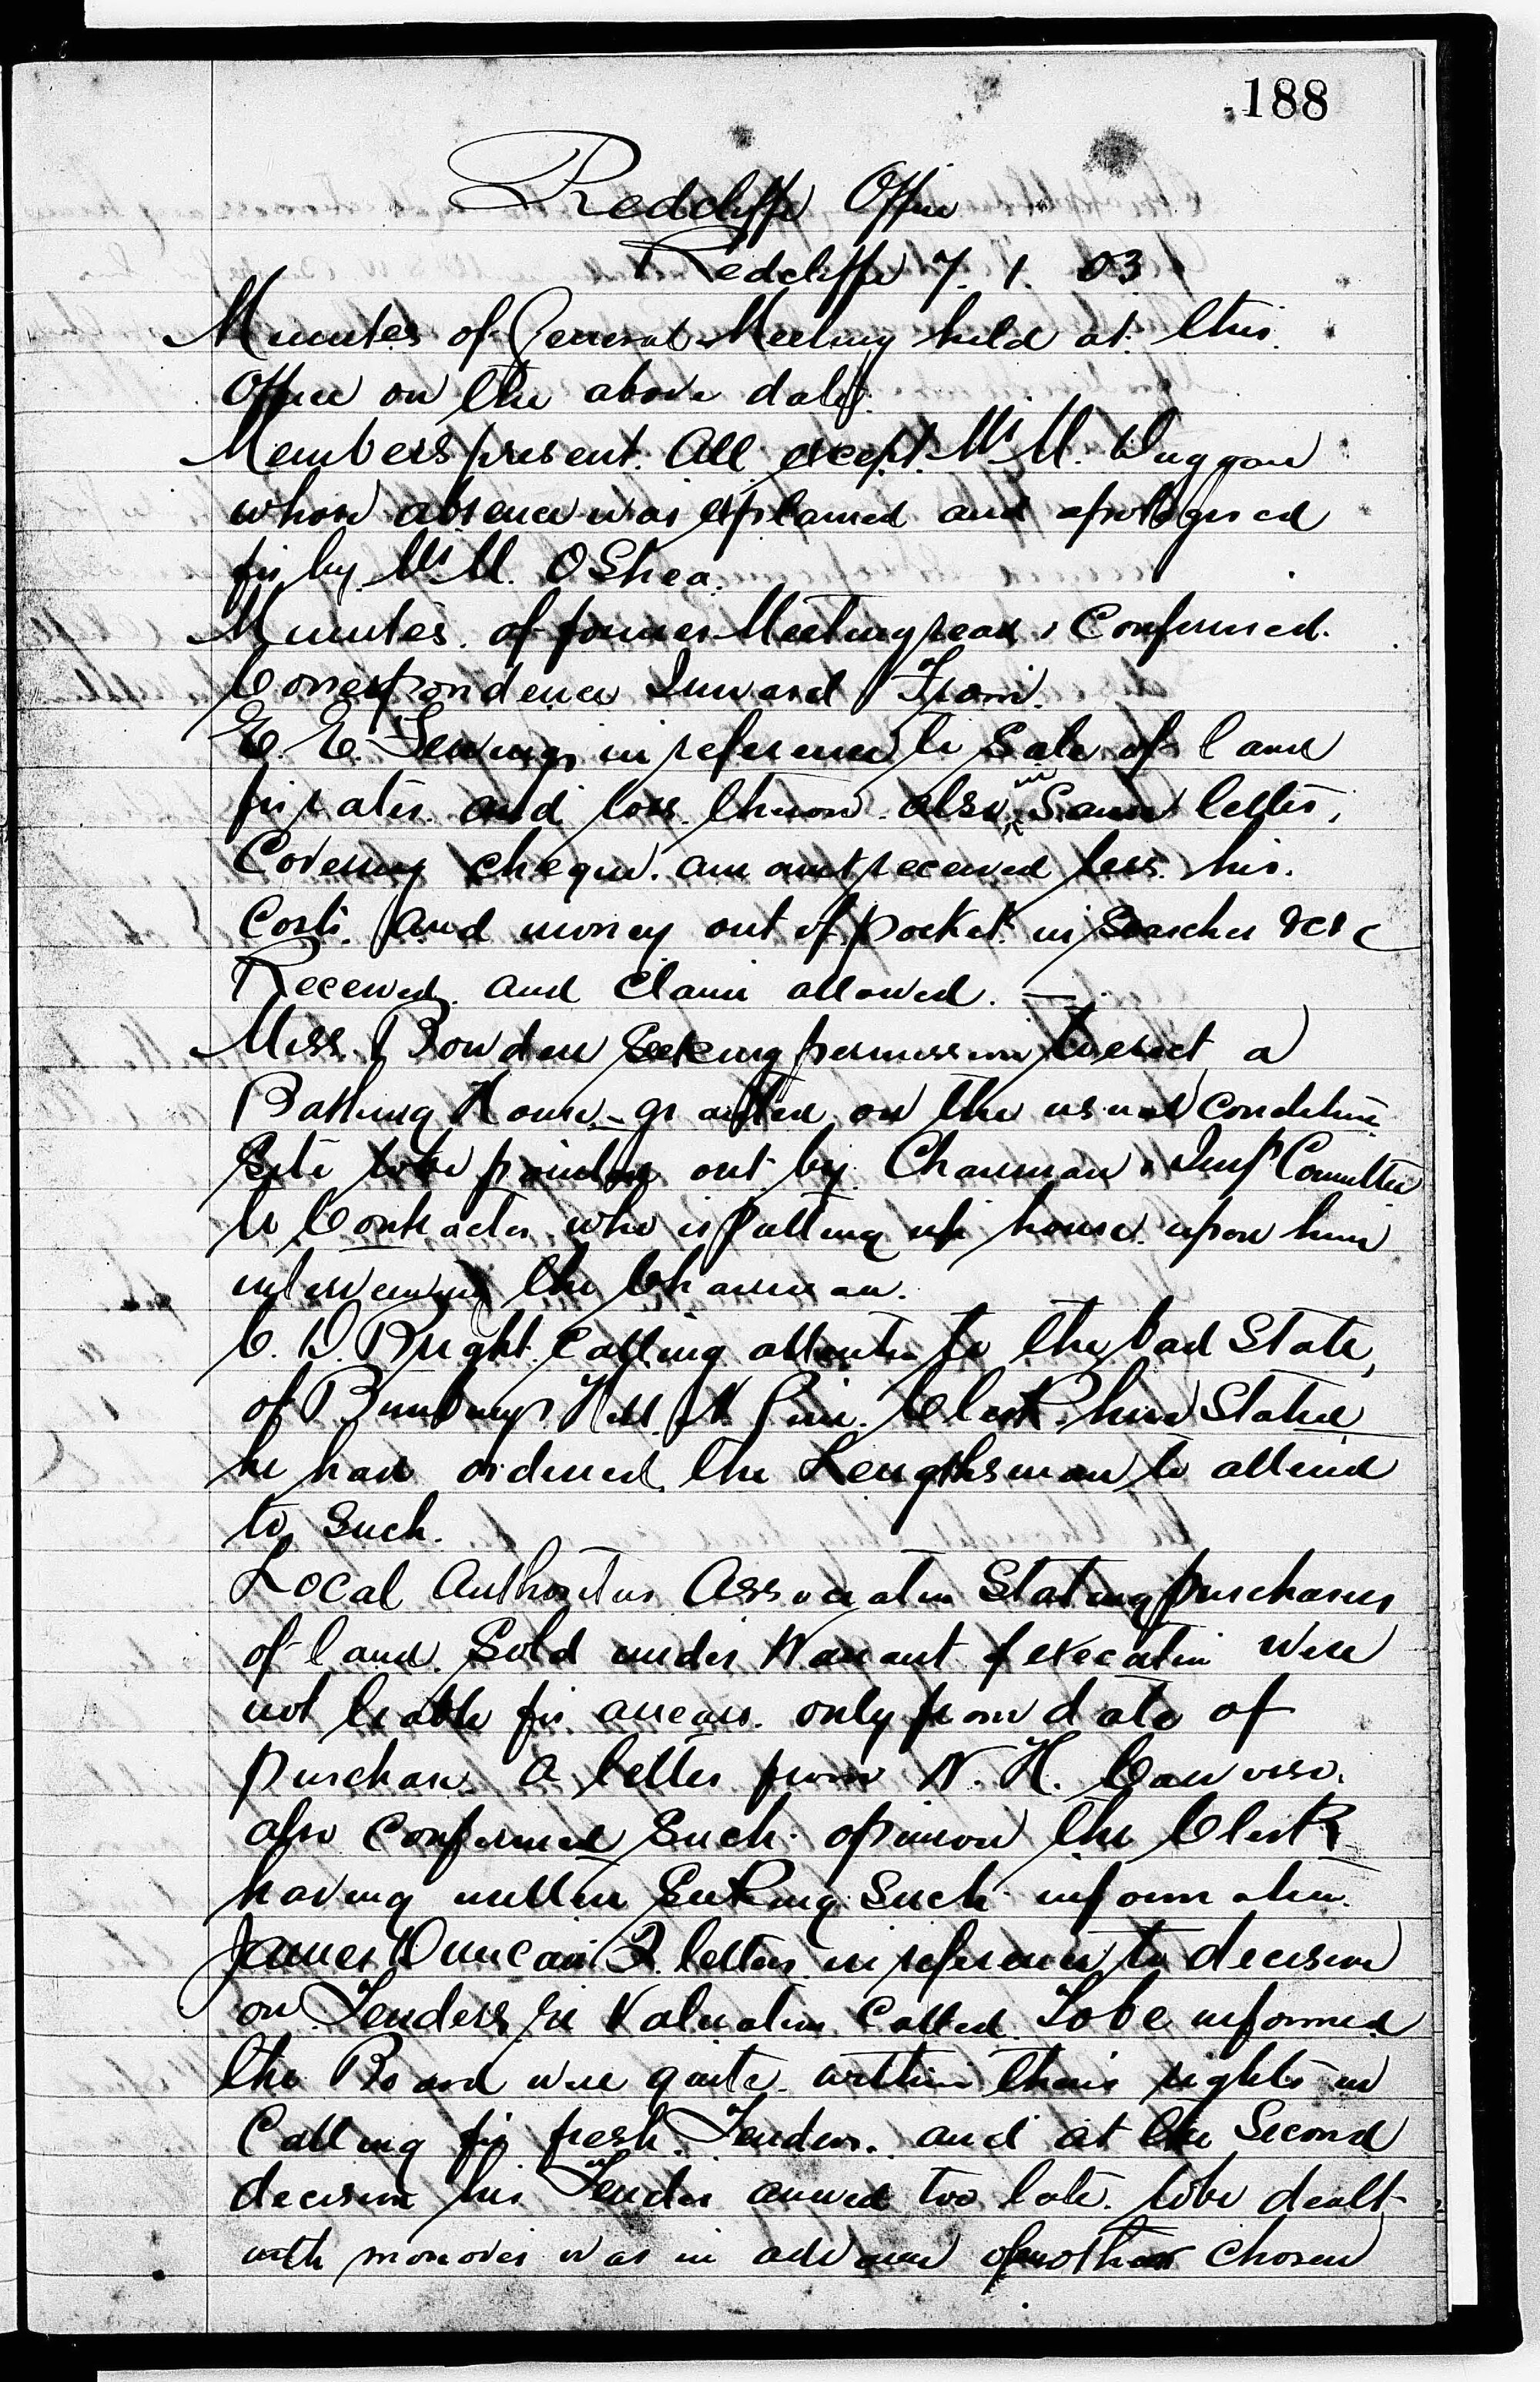 188
Redcliffe Office
Redcliffe 7. 1. 03
Minutes of General Meeting held at this
Office on the above date.
Members present. All except Mr M. Duggan
whose absence was explained and apologised
for by Mr M. OShea.
Minutes of former Meeting read & Confirmed.
Correspondence Inward From.
E. E. in reference to Sale of land
for rates and loss thereon also in Same letter,
Covering cheque. amount received less his
Costs. and money out of pocket in Searches &c &c
Received and Claim allowed. —
Miss Bowden Seeking permission to erect a
Bathing House – granted on the usual condition
Site to be pointed out by Chairman & Imp Committee
to Contractor who is putting up house upon him
interviewing the Chairman.
C. D. Bright calling attention to the bad State,
of Hill Clerk here Stated
he had ordered the Lengthsman to attend
to Such.
Local Authorities Association Stating purchasers
of land Sold under Warrant of execution were
not liable for arrears only from date of
purchase. A letter from N. H.
also Confirmed Such opinion the Clerk
having written Seeking Such information.
James Duncan 2 letters in reference to decision
on Tenders for Valuation Called. To be informed
the Board were quite within their rights in
Calling for fresh Tenders. and at the Second
decision his Tender arrived too late to be dealt
with moreover was in advance of another chosen